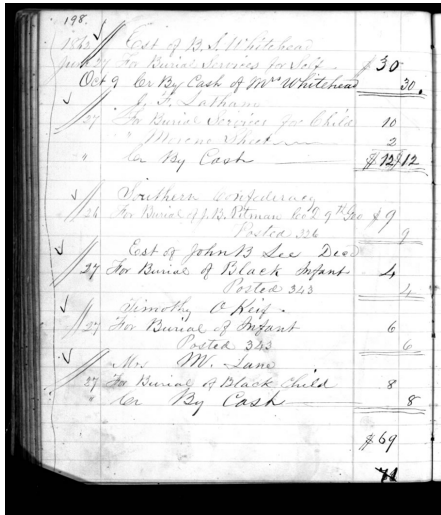 198.
1863 Est of B. S. Whitehead
27 For Burial Services for Self $30
Oct 9 Cr By Cash of Mrs Whitehead 30.
Latham
27 For Burial Services for Child 10
" Sheet 2
" Cr By Cash $12 $12
Southern Confederacy
26 For Burial of J. B. Pitman Co 9th Geo $9
Posted 326 9
Est of John B Lee Decd
27 For Burial of Black Infant 4
Posted 343 4
Timothy O Keif.
27 For Burial of Infant 6
Posted 343 6
Mrs M. Lane
27 For Burial of Black Child 8
" Cr By Cash 8
$69
71